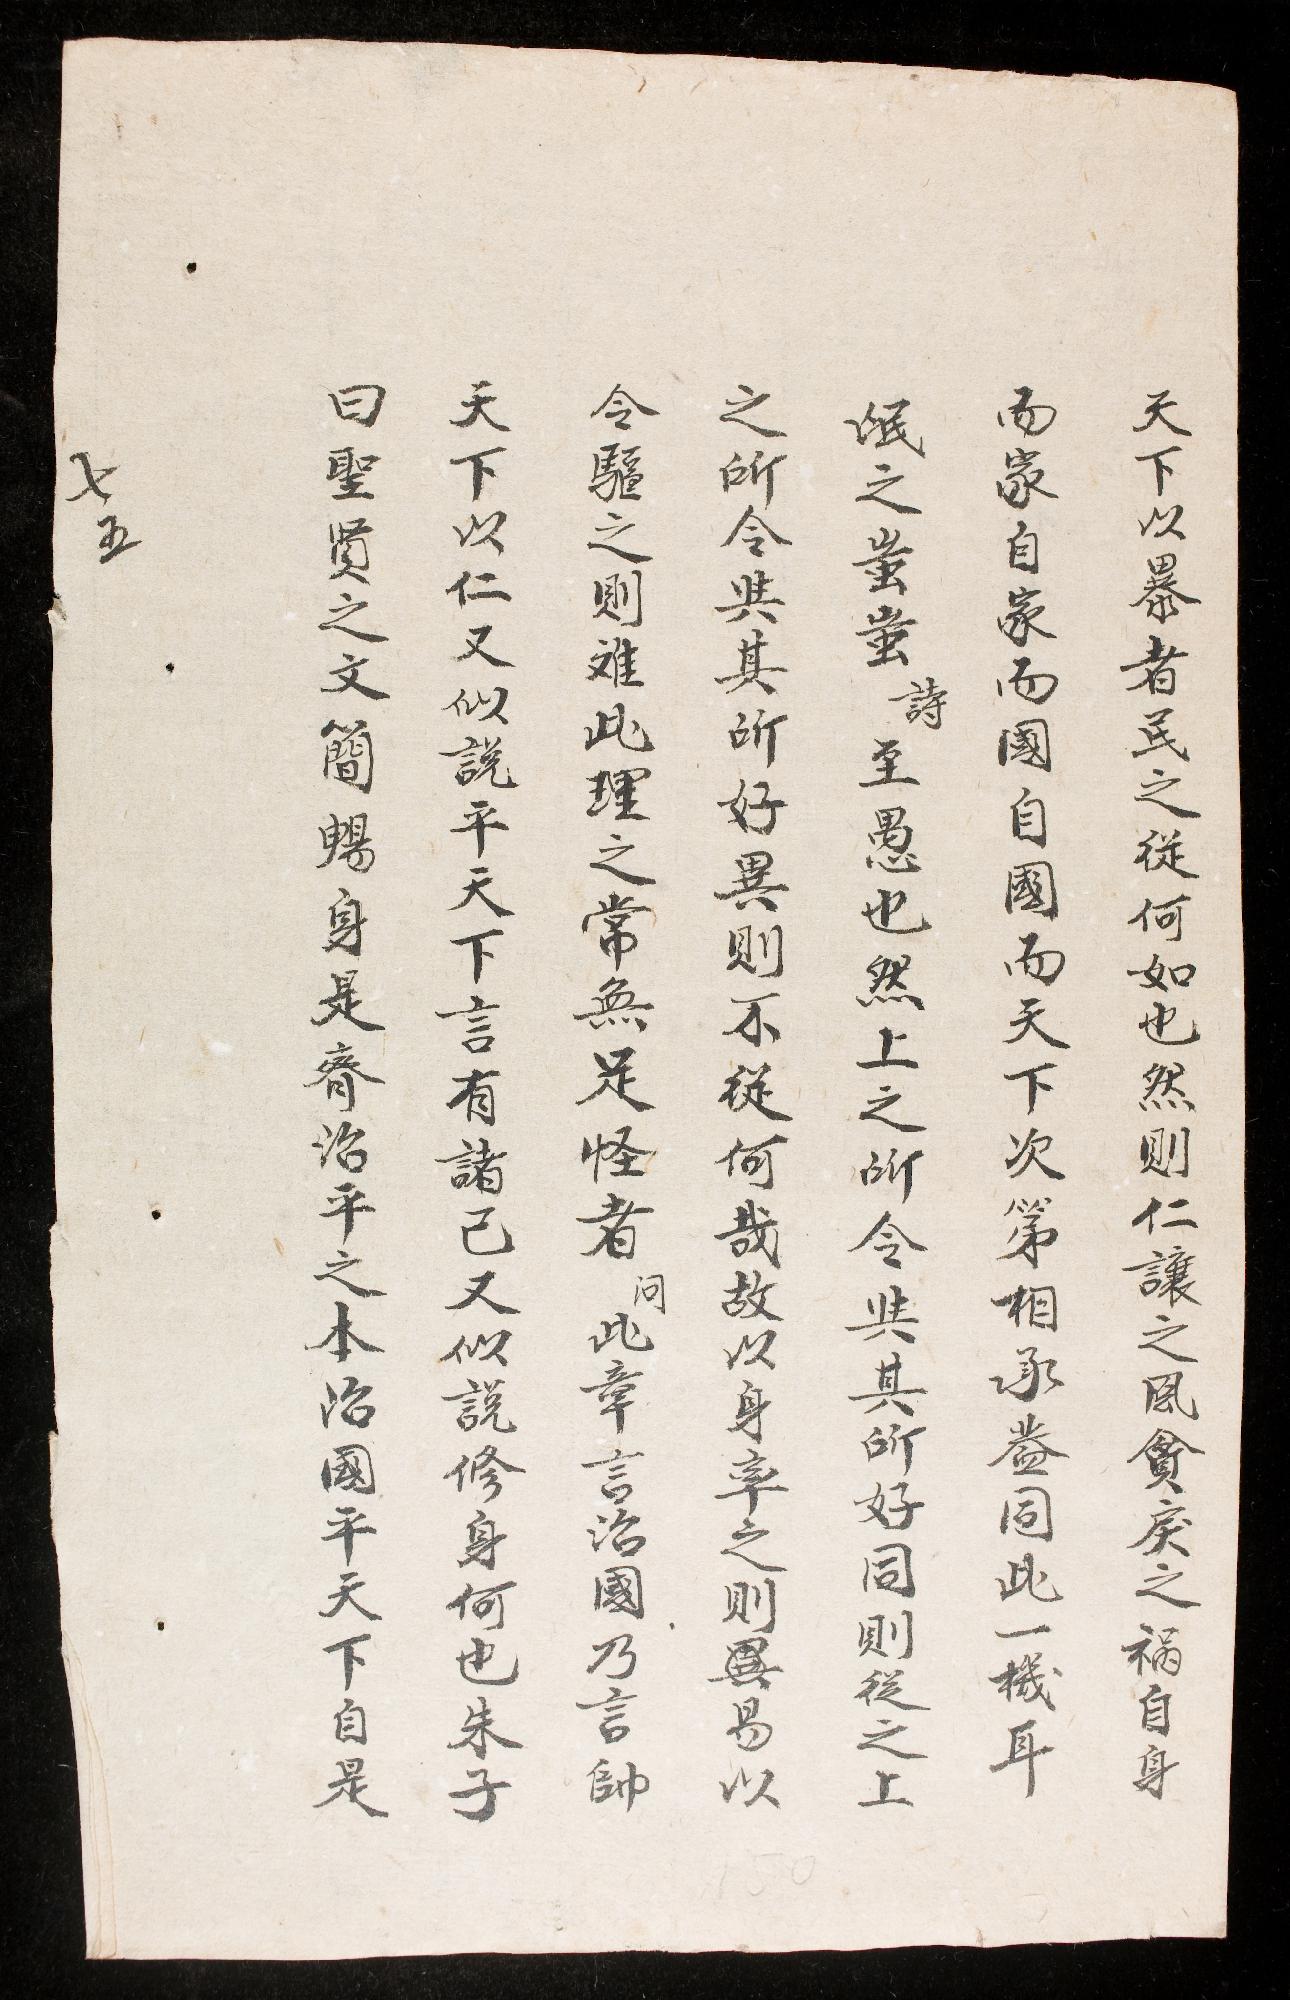 天下以暴者民之從何如也然則仁讓之風貪戾之禍自身
而家自家而國自國而天下次第相承盖同此一機耳
氓之蚩蚩詩至愚也然上之所令与其所好同則從之上
之所令与其所好異則不從何哉故以身率之則異易以
令驅之則难此理之常無足怪者问此章言治國乃言帥
天下以仁又似說平天下言有諸己又似說修身何也朱子
曰聖贤之文簡暘身是齊治平之本治國平天下自是
七五
150